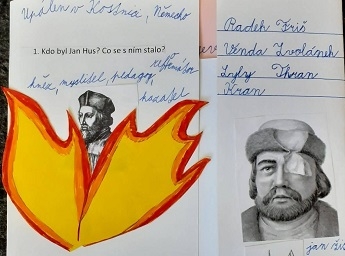 Upálen v Kostnici, Německo
1. Kdo byl Jan Hus? Co se s ním stalo?
kněz, myslitel, pedagog, reformátor
kazatel
Radek Friš
Vénda Zvolánek
Thran
Kran
jan